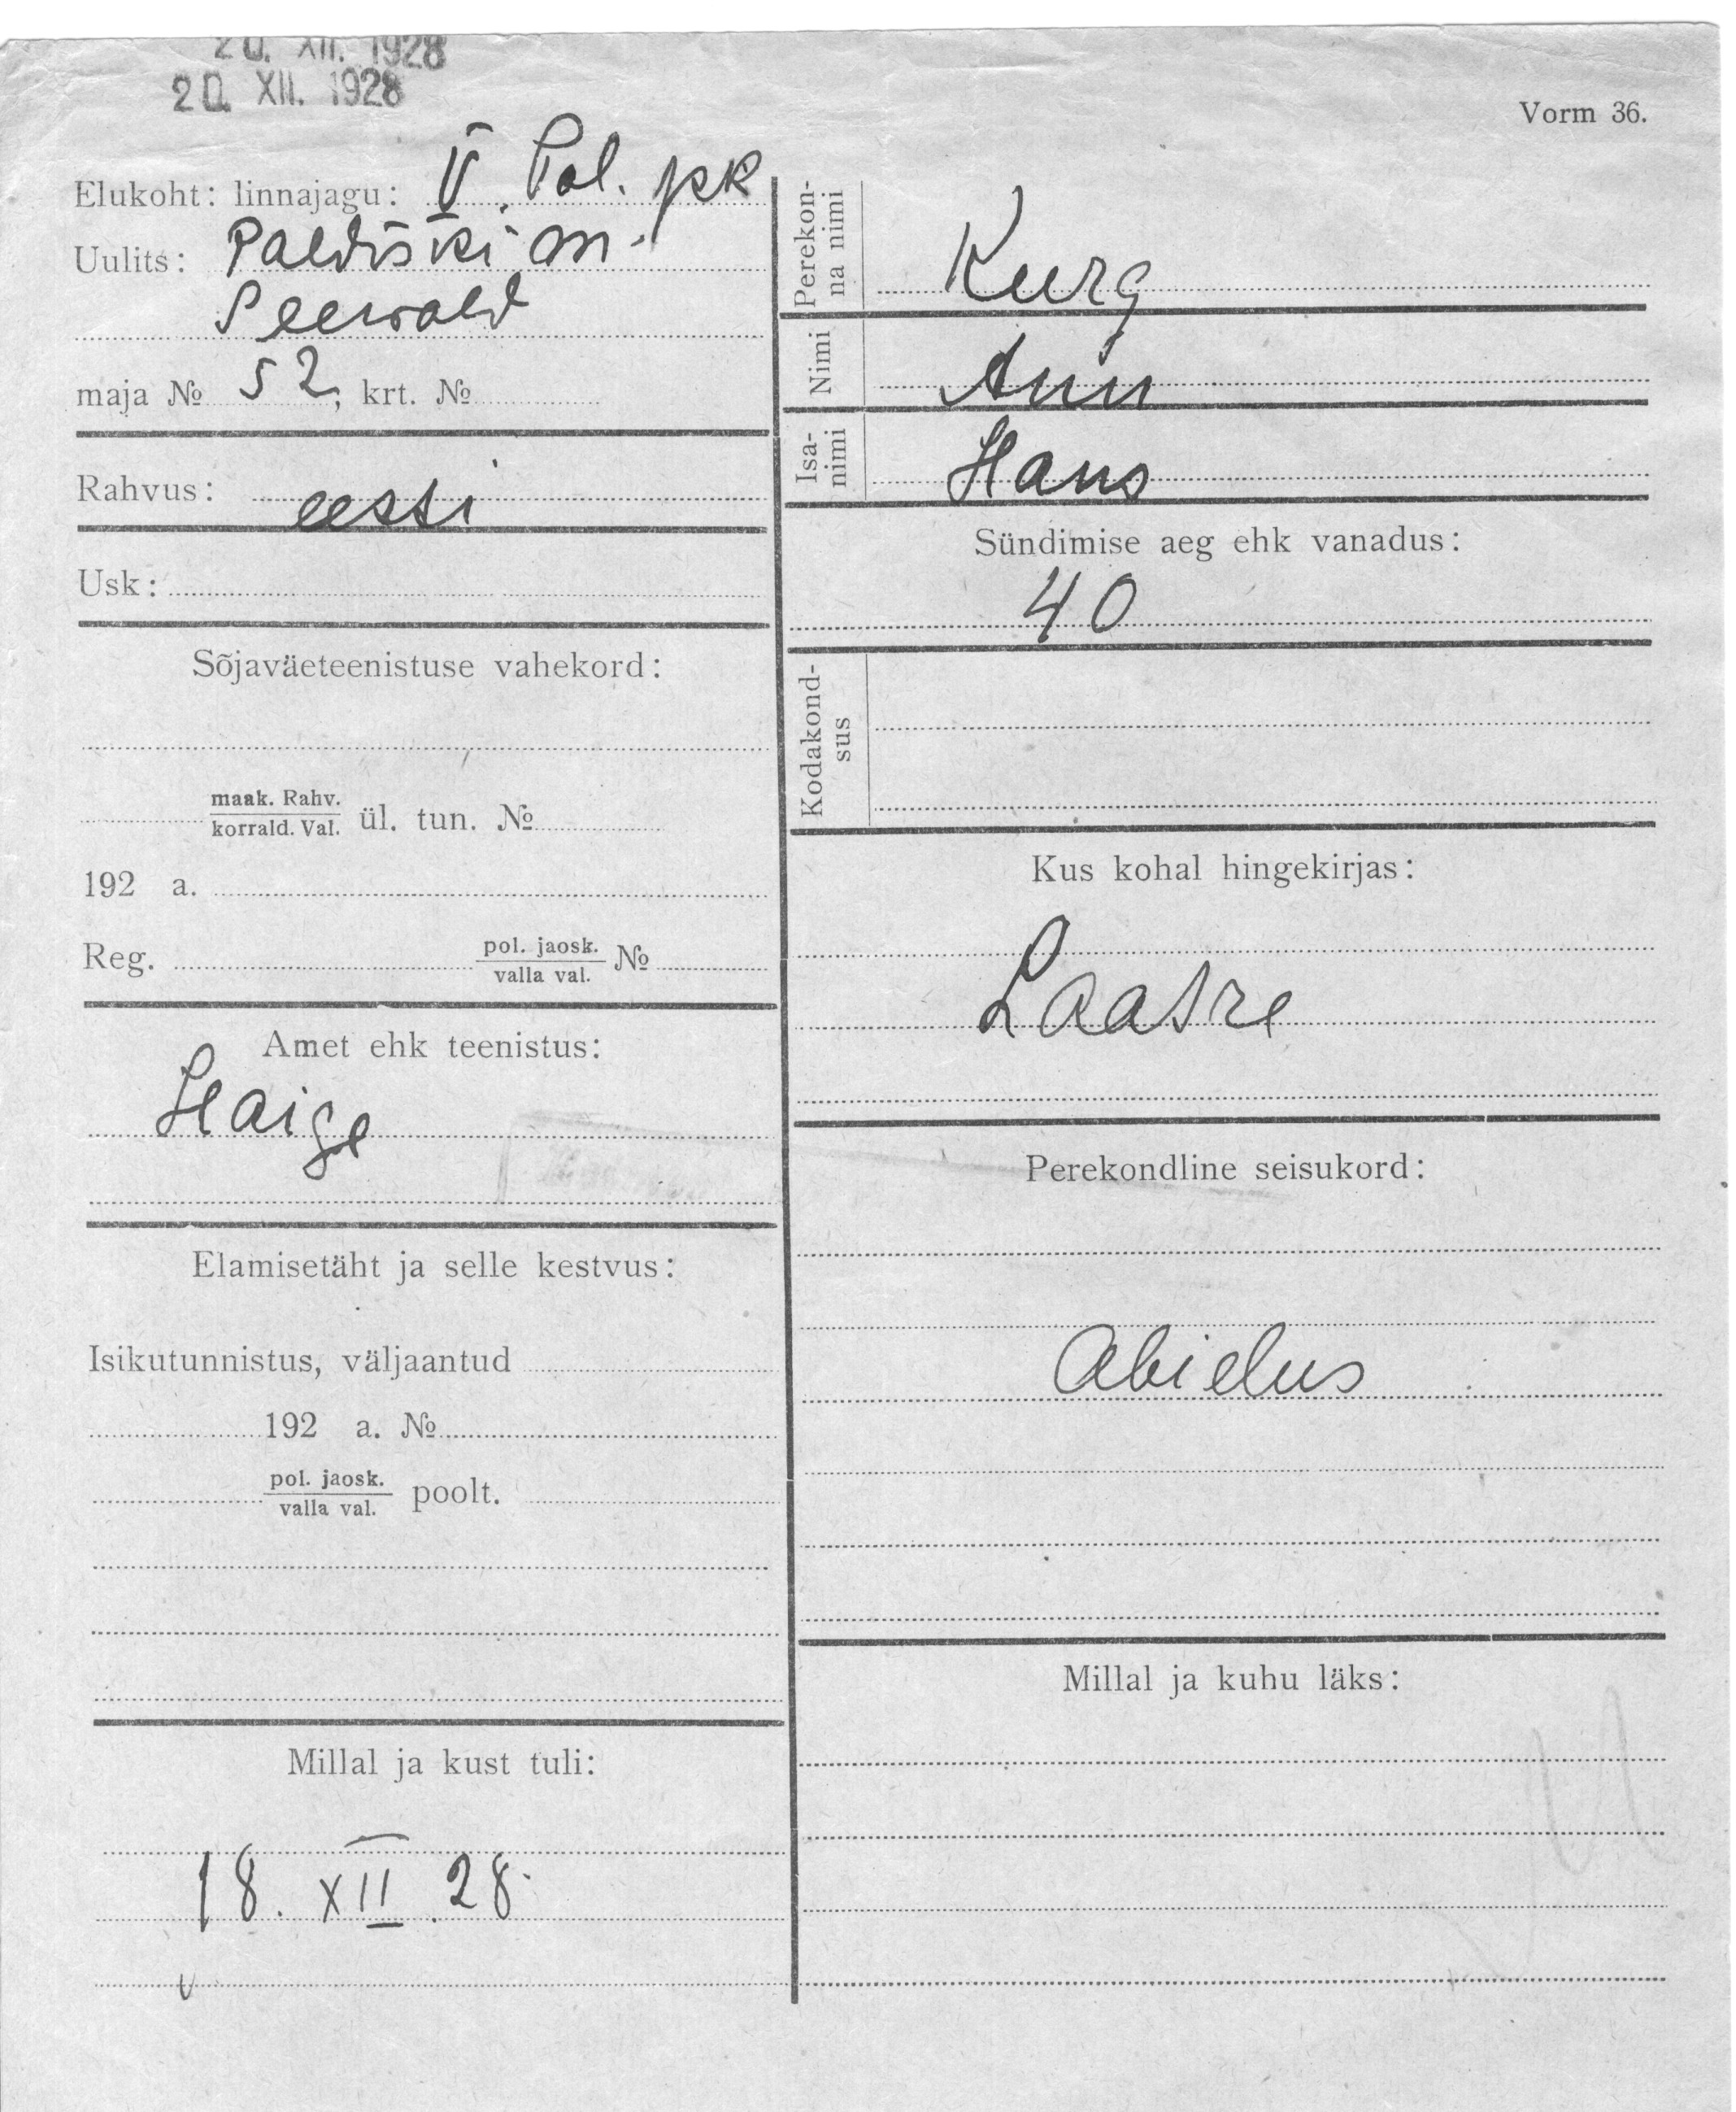 20. XII. 1928
20. XII. 1928
Vorm 36.
Elukoht: linnajagu: V. Pol. jsk
Uulits: Paldiski m.
Seewald
maja № 52; krt. №
Rahvus: eesti
Usk:
Sõjaväeteenistuse vahekord:
maak. Rahv.
korrald. Val. ül. tun. №
192 a.
Reg. pol. jaosk. №
valla val.
Amet ehk teenistus:
Haige
Elamisetäht ja selle kestvus:
Isikutunnistus, väljaantud
192 a. №
pol. jaosk.
valla val. poolt.
Millal ja kust tuli:
18. XII. 28.
Perekon-
na nimi
Kurg
Nimi
Ann
Isa-
nimi
Hans
Sündimise aeg ehk vanadus:
40
Kodakond-
sus
Kus kohal hingekirjas:
Laatre
Perekondline seisukord:
Abielus
Millal ja kuhu läks: